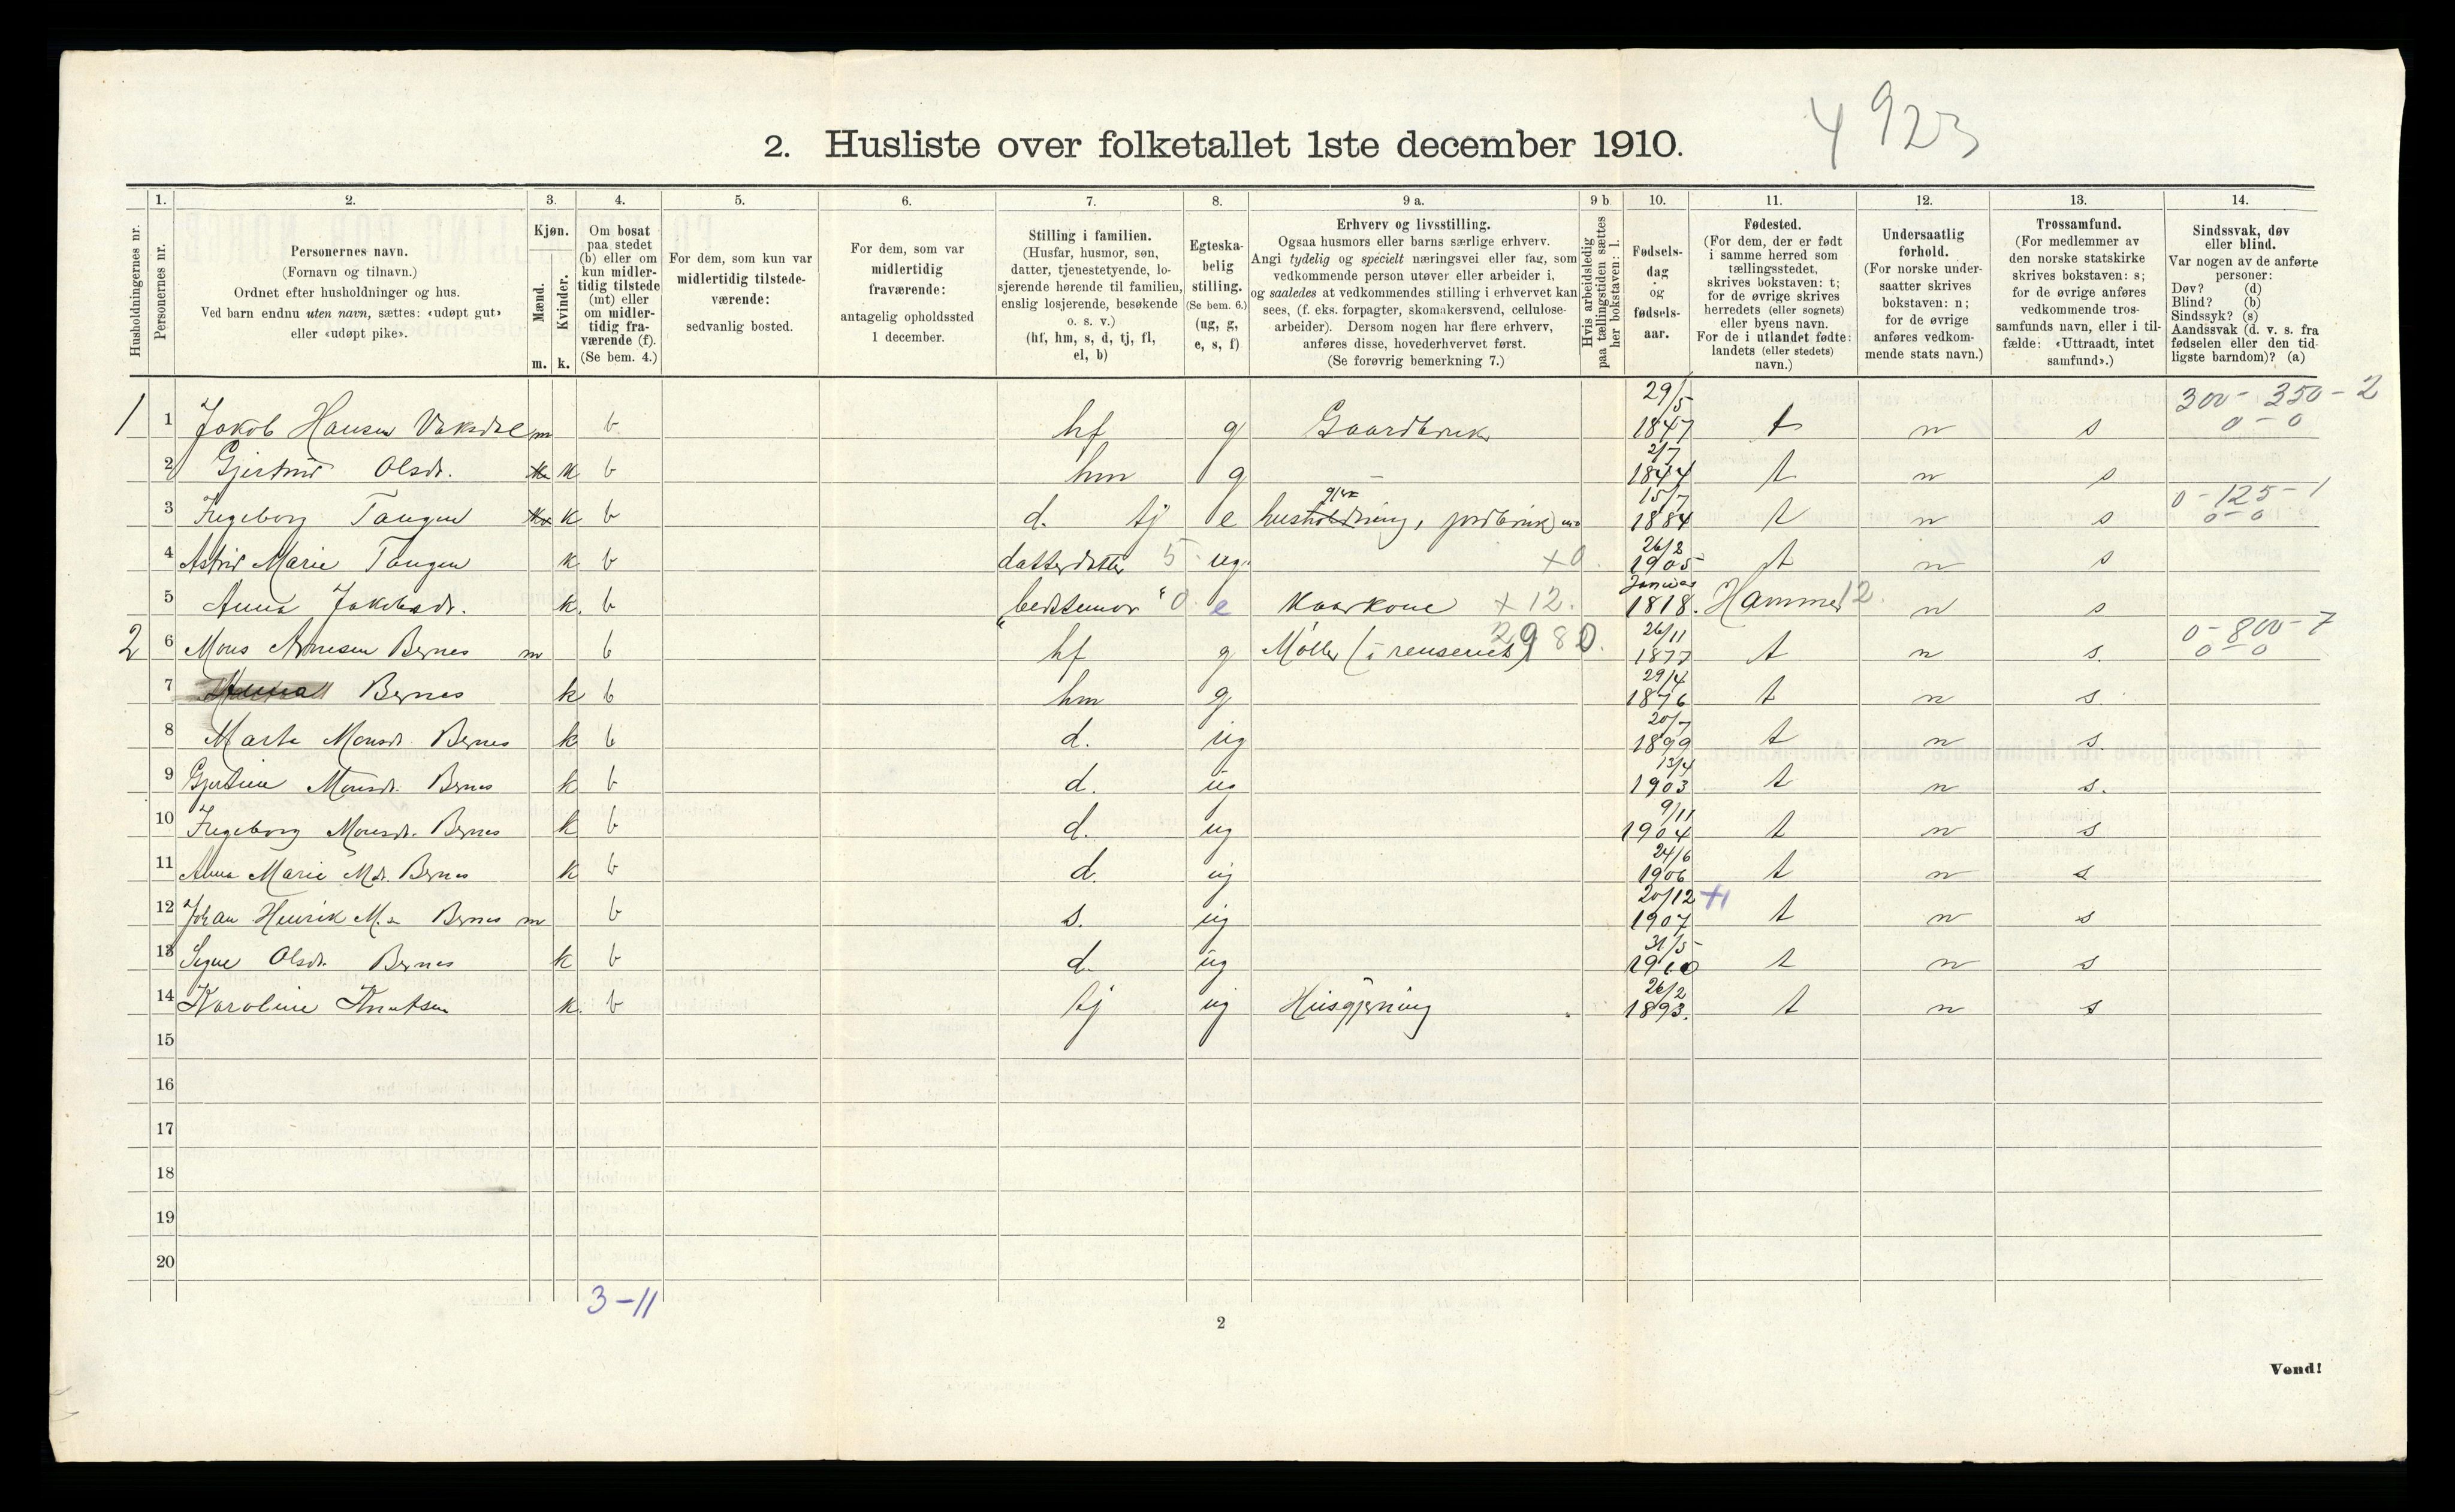 4 923
2. Husliste over folketallet 1ste december 1910.
Husholdningernes nr.
1.
Personernes nr.
2.
Personernes navn.
(Fornavn og tilnavn.)
Ordnet efter husholdninger og hus.
Ved barn endnu uten navn, sættes: «udøpt gut»
eller «udøpt pike».
3.
Kjøn.
Mænd.
Kvinder.
m. k.
4.
Om bosat
paa stedet
(b) eller om
kun midler-
tidig tilstede
(mt) eller
om midler-
tidig fra-
værende (f).
(Se bem. 4.)
5.
For dem, som kun var
midlertidig tilstede-
værende:
sedvanlig bosted.
6.
For dem, som var
midlertidig
fraværende:
antagelig opholdssted
1 december.
7.
Stilling i familien.
(Husfar, husmor, søn,
datter, tjenestetyende, lo-
sjerende hørende til familien,
enslig losjerende, besøkende
o. s. v.)
(hf, hm, s, d, tj, fl,
el, b)
8.
Egteska-
belig
stilling.
(Se bem. 6.)
(ug, g,
e, s, f)
9 a.
Erhverv og livsstilling.
Ogsaa husmors eller barns særlige erhverv.
Angi tydelig og specielt næringsvei eller fag, som
vedkommende person utøver eller arbeider i,
og saaledes at vedkommendes stilling i erhvervet kan
sees, (f. eks. forpagter, skomakersvend, cellulose-
arbeider). Dersom nogen har flere erhverv,
anføres disse, hovederhvervet først.
(Se forøvrig bemerkning 7.)
9 b
Hvis arbeidsledig
paa tællingstiden sættes
her bokstaven: l.
10.
Fødsels-
dag
og
fødsels-
aar.
11.
Fødested.
(For dem, der er født
i samme herred som
tællingsstedet,
skrives bokstaven: t;
for de øvrige skrives
herredets (eller sognets)
eller byens navn.
For de i utlandet fødte:
landets (eller stedets)
navn.)
12.
Undersaatlig
forhold.
(For norske under-
saatter skrives
bokstaven: n;
for de øvrige
anføres vedkom-
mende stats navn.)
13.
Trossamfund.
(For medlemmer av
den norske statskirke
skrives bokstaven: s;
for de øvrige anføres
vedkommende tros-
samfunds navn, eller i til-
fælde: «Uttraadt, intet
samfund».)
14.
Sindssvak, døv
eller blind.
Var nogen av de anførte
personer:
Døv? (d)
Blind? (b)
Sindssyk? (s)
Aandssvak (d. v. s. fra
fødselen eller den tid-
ligste barndom)? (a)
1 1 Jakob Hansen Vaksdal m b hf g Gaardbruk 29/5 1847 t n s 300 - 350 - 2 0 - 0
2 Gjertrud Olsdr. k b hm g — 2/7 1844 t n s
3 Ingeborg Tangen k b d. tj e husholdning, jordbruk 15/7 1884 t n s 0 - 125 - 1 0 - 0
4 Astrid Marie Tangen k b datterdatter 5 ug. +0. 26/2 1905 t n s
5 Anna Jakobsdr. k. b bedstemor 0 e Kaarkone +12. Januar 1818. Hammer 12. n s
2 6 Mons Arnesen Bernes m b hf g Møller (i 2980. 26/11 1877 t n s. 0 - 800 - 7 0 - 0
7 Bernes k b hm g 29/4 1876 t n s.
8 Marta Monsdr. Bernes k b d. ug 20/7 1899 t n s.
9 Gjertine Monsdr. Bernes k b d. ug 13/4 1903 t n s.
10 Ingeborg Monsdr. Bernes k b d. ug 9/11 1904 t n s
11 Anna Marie Mdr. Bernes k b d. ug 24/6 1906 t n s
12 Johan Henrik M. Bernes m b s. ug 20/12 1907 t n s
13 Signe Olsdr. Bernes k b d. ug 31/5 1910 t n s
14 Karoline Knutsen k. b tj ug Husgjerning 26/2 1893. t n s
15
16
17
18
19
20
3-11
2
Vend!